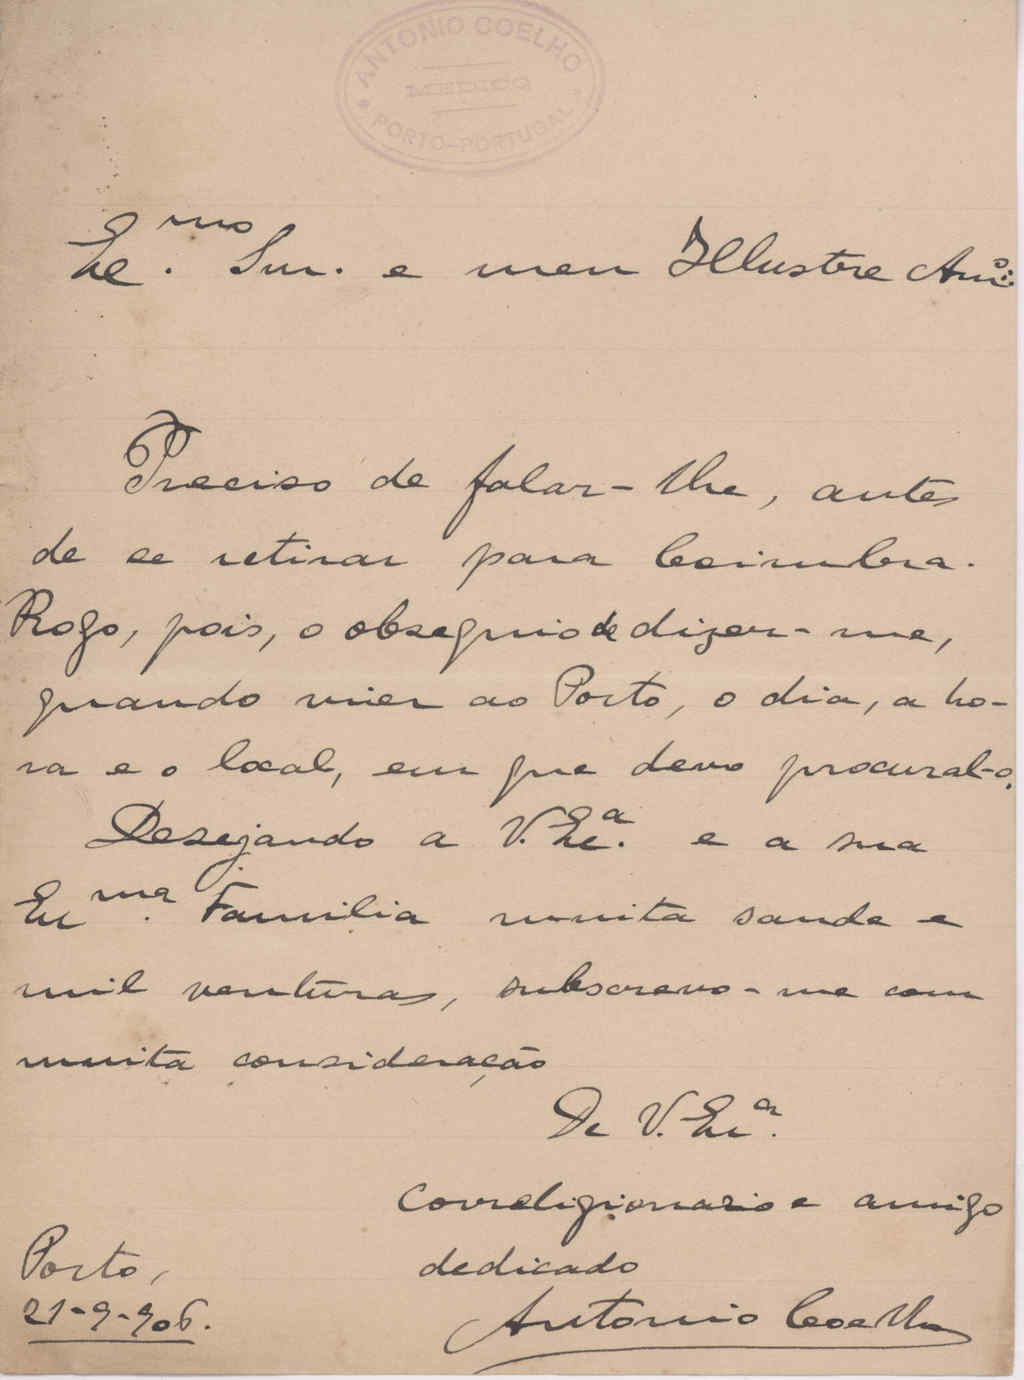 ANTONIO COELHO
MEDICO
PORTO-PORTUGAL
Exc.mo Snr. e meu Illustre Am.o:
Preciso de falar-lhe, antes
de se retirar para Coimbra.
Rogo, pois, o obsequio de dizer-me,
quando vier ao Porto, o dia, a ho-
ra e o local, em que devo procural-o.
Desejando a V. Exc.a e a sua
Exc.ma Familia muita saude e
mil venturas, subscrevo-me com
muita consideração
De V. Exc.a
correligionario e amigo
dedicado
Antonio Coelho
Porto,
21-9-906.